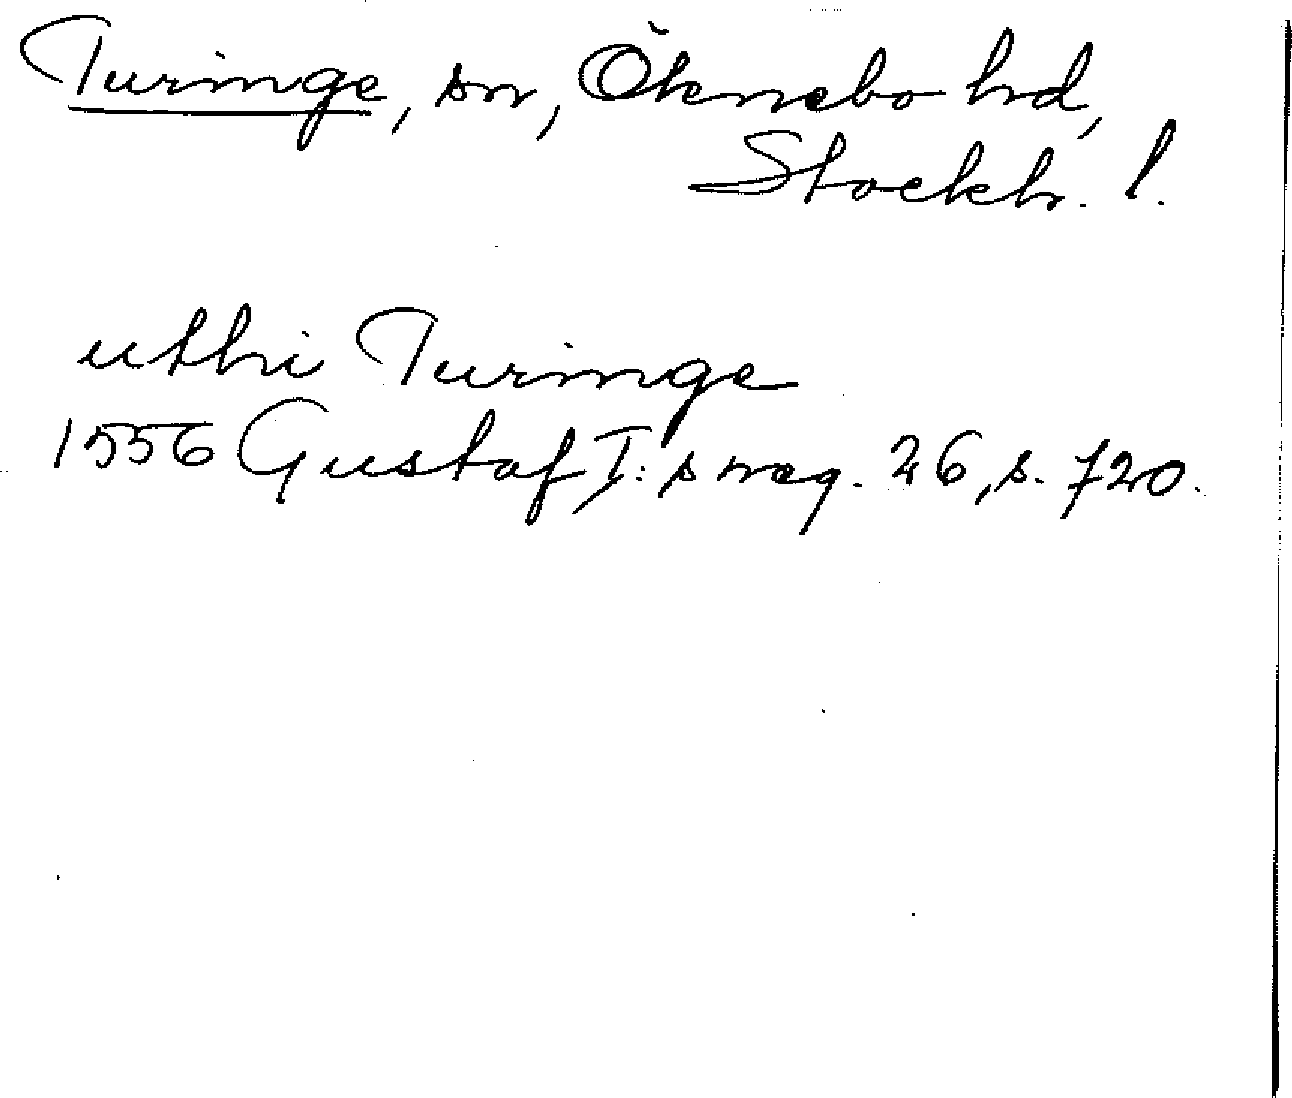 Turinge, sn, Öknebo hd,
Stockh. l.
uthi Turinge
1556 Gustaf I:s reg. 26, s. 720.